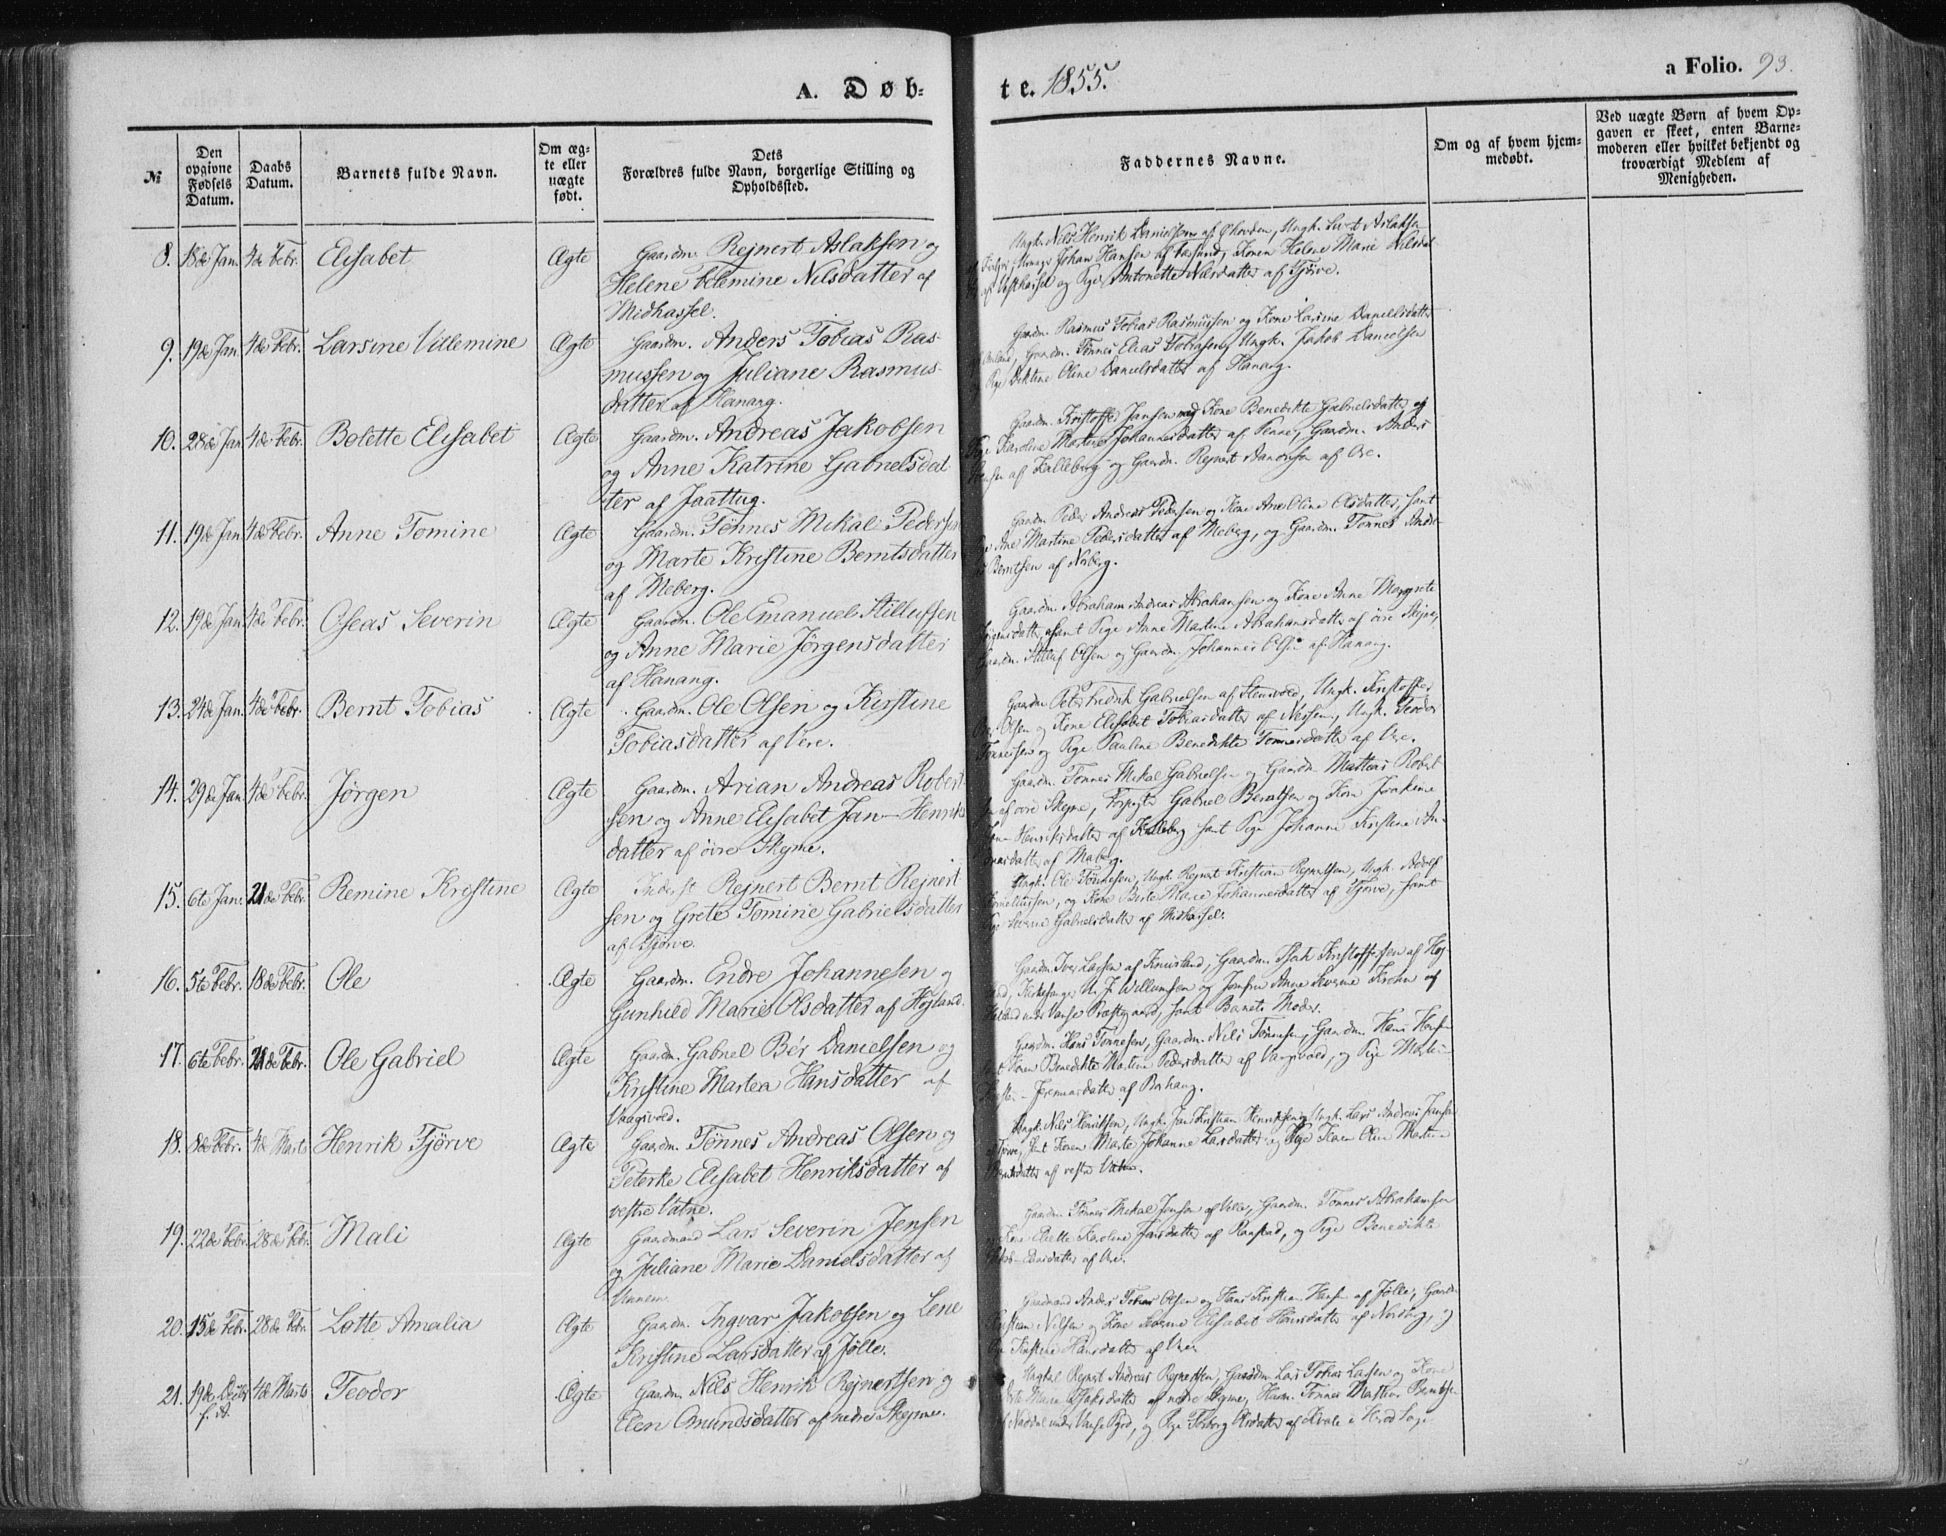 A. Døb-
te. 1855.
a Folio. 93.
№
Den opgivne Fødsels Datum.
Daabs Datum.
Barnets fulde Navn.
Om ægte eller uægte født.
Dets
Forældres fulde Navn, borgerlige Stilling og
Opholdssted.
Faddernes Navne.
Om og af hvem hjem-
medøbt.
Ved uægte Børn af hvem Op-
gaven er skeet, enten Barne-
moderen eller hvilket bekjendt og
troværdigt Medlem af
Menigheden.
8. 18de Jan. 4de Febr. Elisabet Ægte Gaardm. Rejnert Aslaksen og
Helene Nilsdatter af
Midhassel.
Ungk. Nils Henrik Danielsen af Ungk. Aslaksen
Johan Hansen af Konen Helene Marie
af Vesthassel og Pige Antonette Nilsdatter af Tjørve.
9. 19de Jan. 4de Febr. Larsine Villemine Ægte Gaardm. Anders Tobias Ras-
mussen og Juliane Rasmus-
datter af Hanang.
Gaardm. Rasmus Tobias Rasmussen og Kone Larsine Danielsdatter
Gaardm. Tønnes Elias Tobiasen, Ungk. Jakob Danielsen
Pige Oline Danielsdatter af Hanang.
10. 28de Jan. 4de Febr. Bolette Elisabet Ægte Gaardm. Andreas Jakobsen
og Anne Katrine Gabrielsdat-
ter af Jaattug.
Gaardm. Kristoffer Jansen og Kone Benedikte Gabrielsdatter og
Pige Karoline Martine Johannesdatter af Penne, Gaardm. Anders
af Kalleberg og Gaardm. Rejnert af Ore.
11. 19de Jan. 4de Febr. Anne Tomine Ægte Gaardm. Tønnes Mikal Pedersen
og Marte Kristine Berntsdatter
af Meberg.
Gaardm. Peder Andreas Pedersen og Kone Ane Oline Olsdatter, samt
Pige Ane Martine Pedersdatter af Meberg, og Gaardm. Tønnes Andr-
Berntsen af Norberg.
12. 19de Jan. 4de Febr. Oseas Severin Ægte Gaardm. Ole Emanuel Stillufsen
og Anne Marie Jørgensdatter
af Hanang.
Gaardm. Abraham Andreas Abrahamsen og Kone Anne Margrete
Jørgensdatter, samt Pige Anne Martine Abrahamsdatter af øvre Skeyme,
Gaardm. Stilluf Olsen og Gaardm. Johannes Olsen af Hanang.
13. 24de Jan. 4de Febr. Bernt Tobias Ægte Gaardm. Ole Olsen og Kirstine
Tobiasdatter af Vere.
Gaardm. Peter Fredrik Gabrielsen af Steinsvold, Ungk. Kristoffer
Olsen og Kone Elisabet Tobiasdatter af Nesheim, Ungk. Teodor
Tønnesen og Pige Pauline Benedikte Tønnesdatter af Ore.
14. 29de Jan. 4de Febr. Jørgen Ægte Gaardm. Arian Andreas Robert-
sen og Anne Elisabet Jan-Henriks
datter af øvre Skeyme.
Gaardm. Tønnes Mikal Gabrielsen og Gaardm. Mathias Robert-
af øvre Skeyme, Forpagter Gabriel Berntsen og Kone Joakime
Jan-Henriksdatter af Kalleberg samt Pige Johanne Kristine An-
af Maberg.
15. 6te Jan. 21de Febr. Remine Kristine Ægte Inderst Rejnert Bernt Rejnert-
sen og Grete Tomine Gabrielsdatter
af Tjørve.
Ungk. Ole Tønnesen, Ungk. Rejnert Kristian Rejnertsen, Ungk. Adolf
Korneliussen, og Kone Berte Marie Johannesdatter af Tjørve, samt
Pige Severine Gabrielsdatter af Midhassel.
16. 5te Febr. 18de Febr. Ole Ægte Gaardm. Endre Johannesen og
Gunhild Marie Olsdatter af Højland.
Gaardm. Iver Larsen af Knivsland, Gaardm. Kristoffersen af Høj-
land, Kirkesanger N. J. Willumsen og Jomfru Anne Severine Krohn af
under Vanse Præstegaard, samt Barnets Moder.
17. 6te Febr. 21de Febr. Ole Gabriel Ægte Gaardm. Gabriel Bér Danielsen og
Kristine Martea Hansdatter af
Vaagsvold.
Gaardm. Hans Tønnesen, Gaardm. Nils Tønnesen, Gaardm. Hans
Konen Benedikte Martine Pedersdatter af Vaagsvold, og Pige
Jeremiasdatter af Borhaug.
18. 8de Febr. 4de Marts Henrik Tjørve Ægte Gaardm. Tønnes Andreas Olsen og
Peterke Elisabet Henriksdatter af
vestre Vatne.
Ungk. Nils Henriksen, Ungk. Jan Kristian Henriksen, Ungk. Lars Andreas Jansen
af Tjørve, samt Konen Marte Johanne Larsdatter og Pige Karen Oline Martine
af vestre Vatne.
19. 22de Febr. 28de Febr. Mali Ægte Gaardmand Lars Severin Jensen
og Juliane Marie Danielsdatter af
Unnem.
Gaardm. Tønnes Mikal Jensen af Velle, Gaardm. Tønnes Abrahamsen
Kone Elette Karoline Jansdatter af Raastad, og Pige Benedikte
af Ore.
20. 15de Febr. 28de Febr. Lotte Amalia Ægte Gaardm. Ingvar Jakobsen og Lene
Kristine Larsdatter af Jølle.
Gaardmand Anders Tobias Olsen og Hans Kristian Hansen af Jølle, Gaardm.
Kristian Nilsen og Kone Severine Elisabet Hansdatter af Norberg, og
Pige Kirstine Hansdatter af Ore.
21. 19de Decbr. f. A. 4de Marts Teodor Ægte Gaardm. Nils Henrik Rejnertsen og
Elen Omundsdatter af nedre Skeyme.
Ungkal Rejnert Andreas Rejnertsen, Gaardm. Lars Tobias Larsen og Kone
Marie af nedre Skeyme, Tønnes Mathias Berntsen
af under Vanse Pgjd, og Pige Torborg Olsdatter af Kvale i